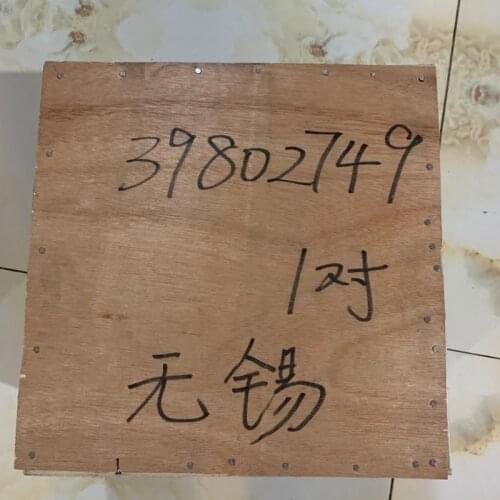 39802749
1对
无锡